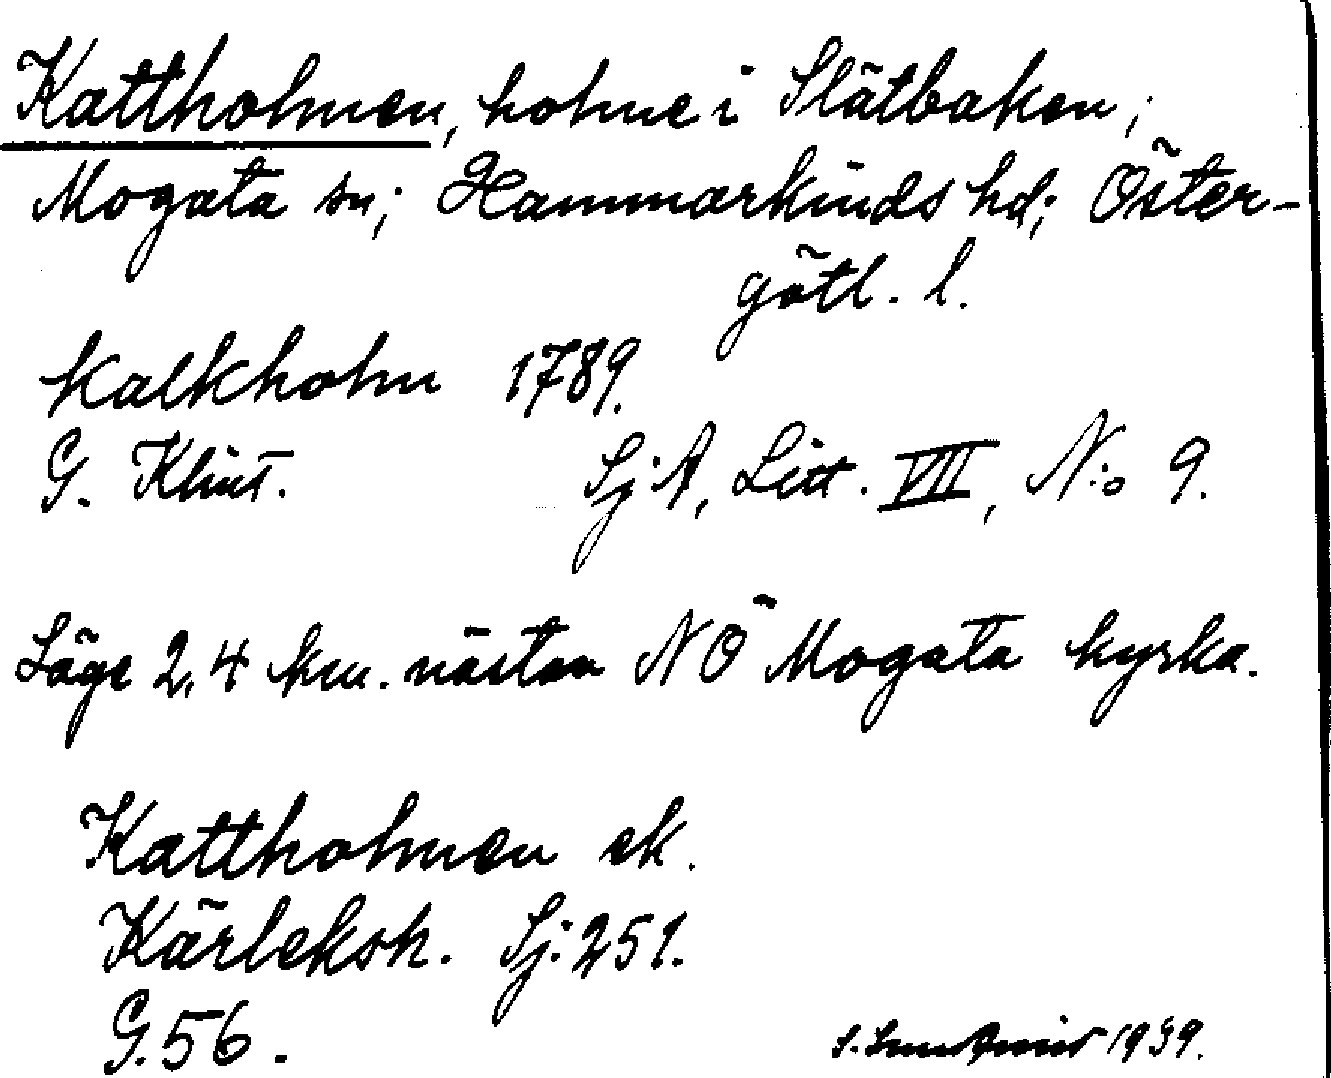 Kattholmen, holme i Slätbaken;
Mogata sn; Hammarkinds hd; Öster-
götl. l.
Kalkholm 1789.
G. Klint. Sj:A, Litt. VII, N:o 9.
Läge 2,4 km. nästan NÖ Mogata kyrka.
Kattholmen ek.
Kärleksh. Sj:251.
G.56.
1939.